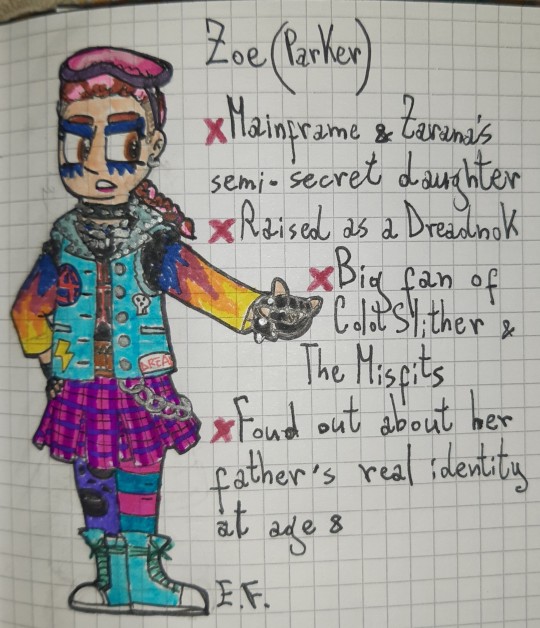 Zoe (Parker)
x Mainframe & Zarana's
semi-secret daughter
x Raised as a Dreadnok
x Big fan of
Cold Slither &
The Misfits
x Foud out about her
father's real identity
at age 8
E.F.
DREA